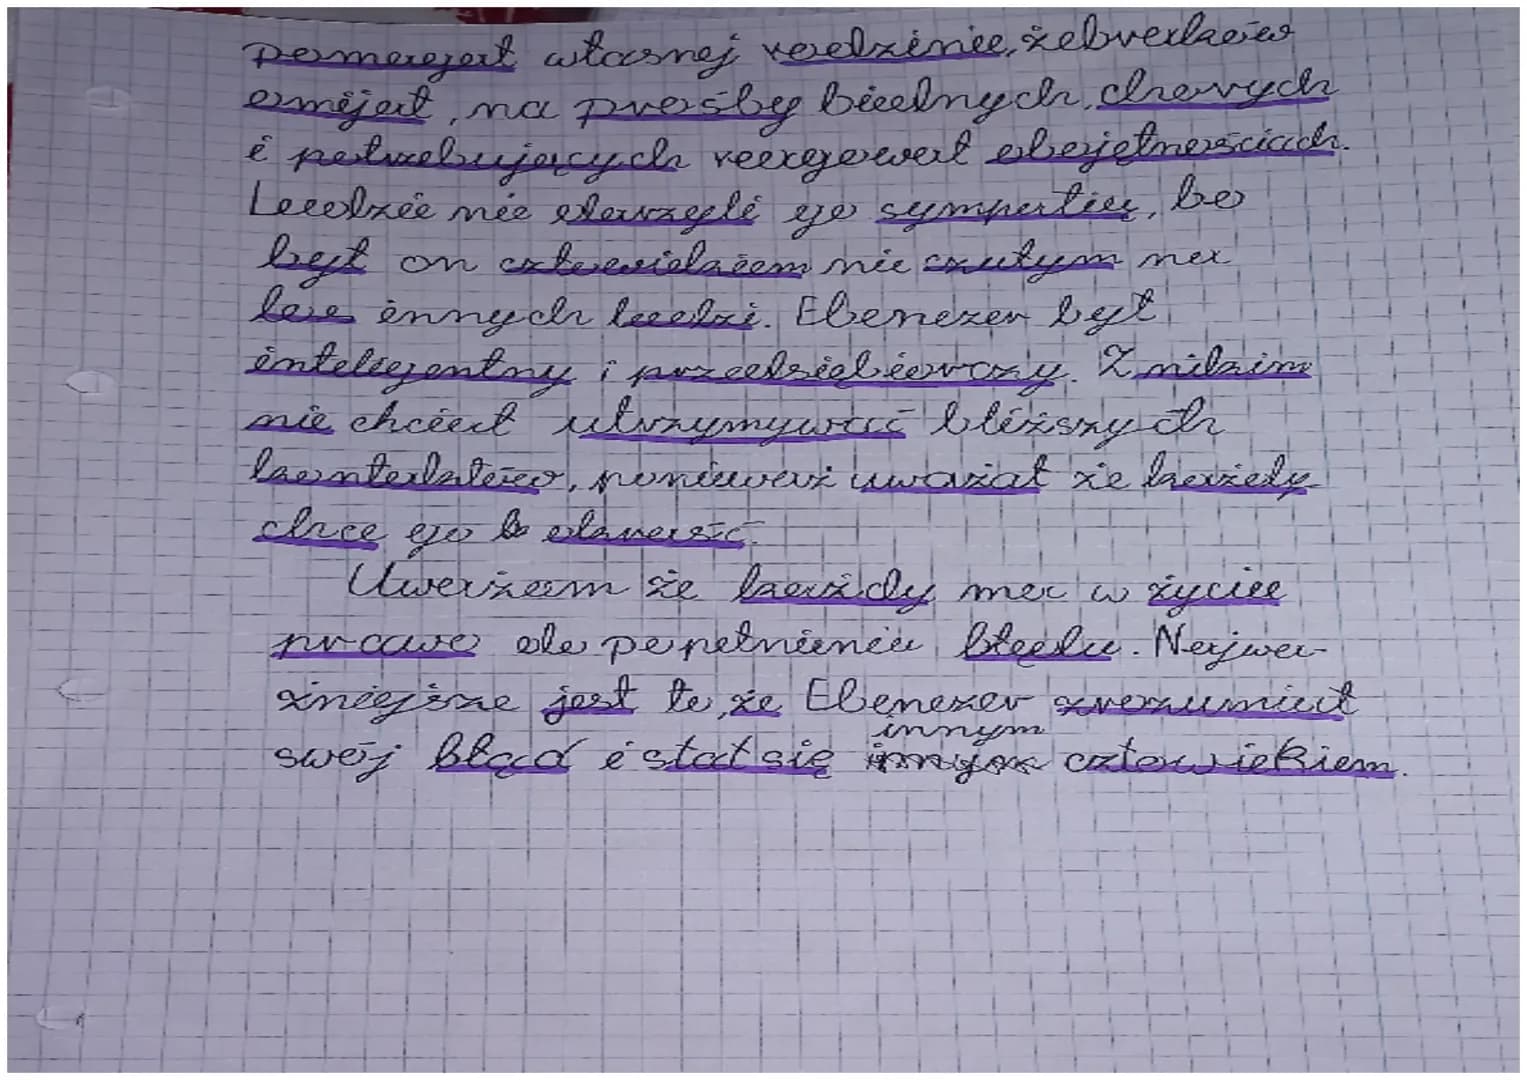 pomagał własnej rodzinie, żebraków
omijał, na prośby biednych, chorych
i potrzebujących reagował obojętnościach.
Ludzie nie darzyli go sympatią, bo
był on człowiekiem nie czułym na
los innych ludzi. Ebenezer był
inteligentny i przedsiębiorczy. Z nikim
nie chciał utrzymywać bliższych
kontaktów, ponieważ uważał że każdy
chce go okraść.
Uważam że każdy ma w życiu
prawo do popełnienia błędu. Najwa-
żniejsze jest to, że Ebenezer zrozumiał
innym
swój błąd i stał się człowiekiem.